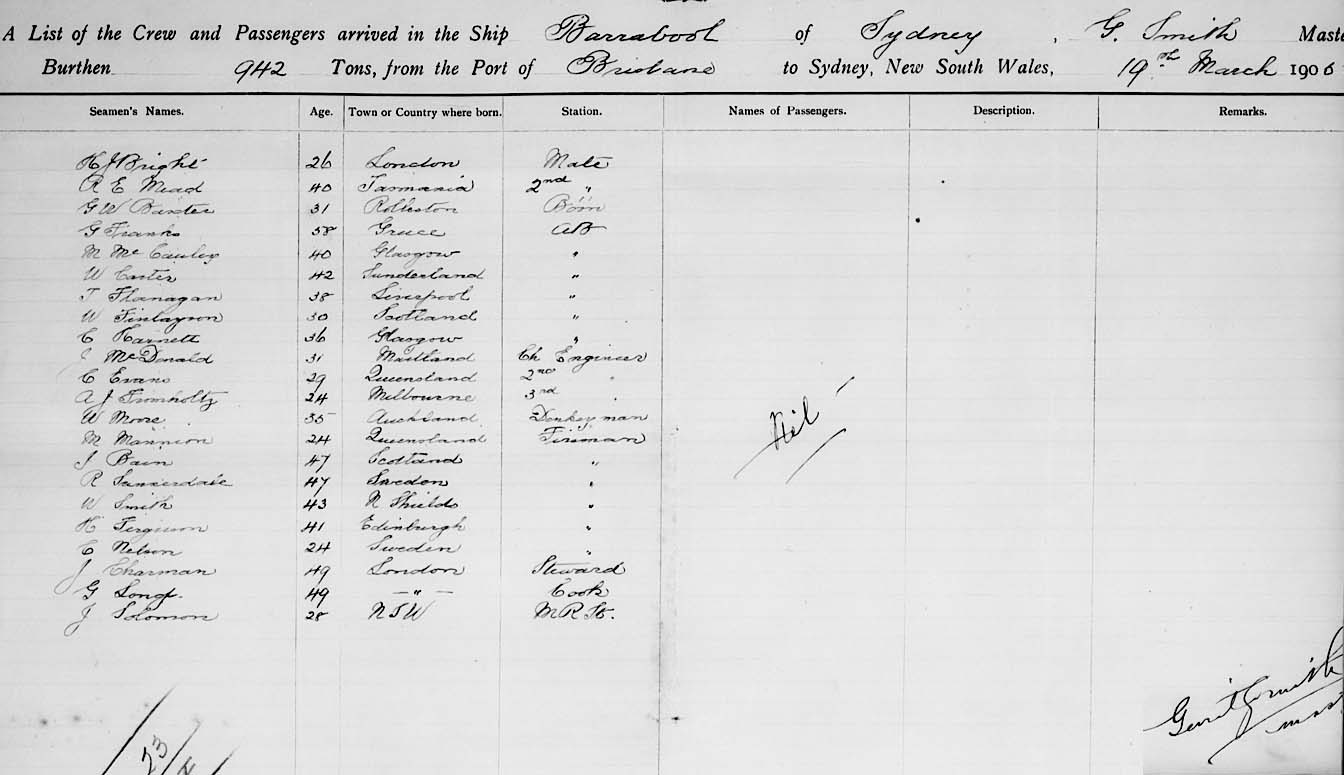 A List of the Crew and Passengers arrived in the Ship Barrabool of Sydney, G. Smith Maste
Burthen 942 Tons, from the Port of Brisbane to Sydney, New South Wales, 19th March 1906
Seamen's Names. Age. Town or Country where born. Station. Names of Passengers. Description. Remarks.
H J Bright 26 London Mate
R E Mead 40 Tasmania 2nd "
G W Baxter 31 Rolleston Bosn
G Franks 58 Greece AB
M McCauley 40 Glasgow "
W Carter 42 Sunderland "
T Flanagan 38 Liverpool "
W Finlayson 30 Scotland "
C Harnett 36 Glasgow "
J McDonald 31 Maitland Ch Engineer
C Evans 29 Queensland 2nd "
A J Fromholtz 24 Melbourne 3rd "
W Moore 35 Auckland Donkeyman
M Mannion 24 Queensland Fireman
J Bain 47 Scotland "
R 47 Sweden "
W Smith 43 N Shields "
H Ferguson 41 Edinburgh "
C Nelson 24 Sweden "
J Charman 49 London Steward
G Long 49 — " — Cook
J Solomon 28 N S W M R St.
Nil
23